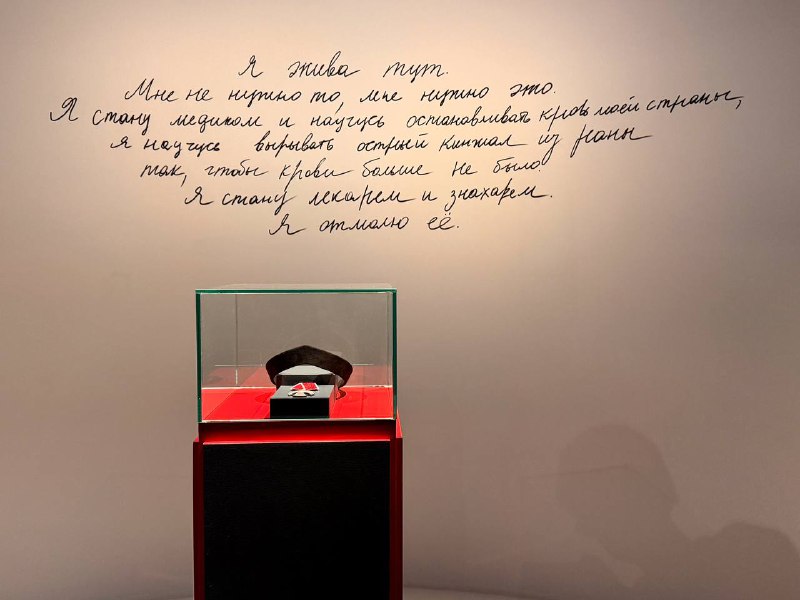 Я жива тут.
Мне не нужно то, мне нужно это.
Я стану медиком и научусь останавливать кровь моей страны,
я научусь вырывать острый кинжал из раны
так, чтобы крови больше не было.
Я стану лекарем и знахарем.
Я отмолю её.